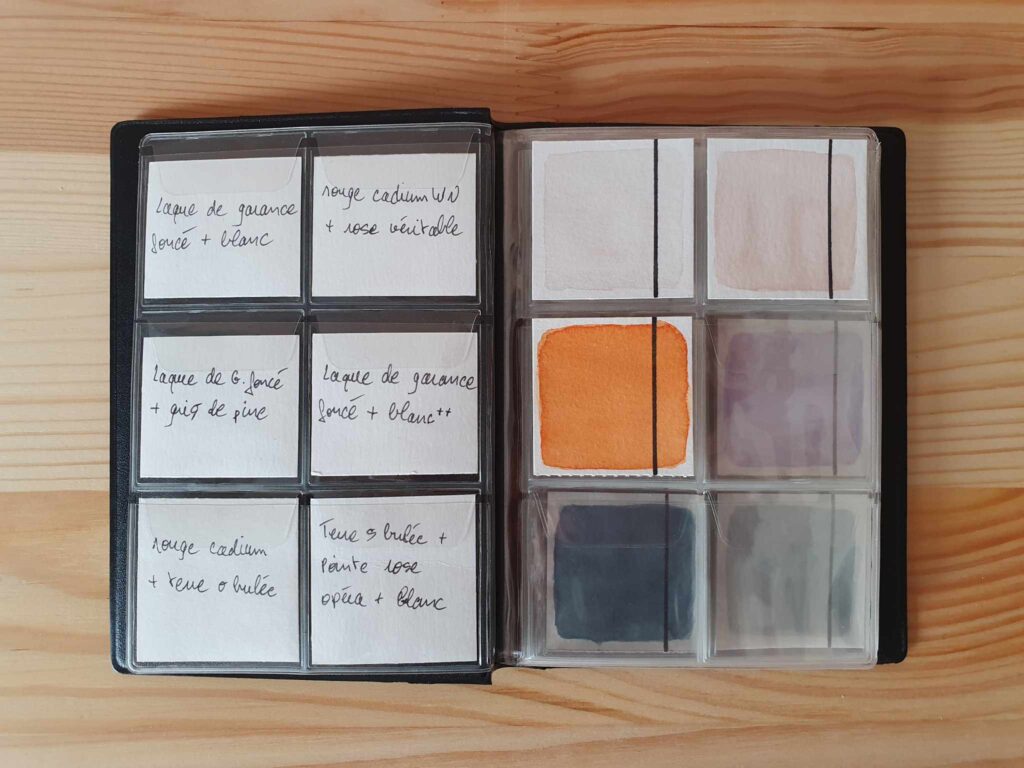 Laque de garance
foncé + blanc
rouge cadium WN
+ rose véritable
Laque de G. foncé
+ gris de pine
Laque de garance
foncé + blanc++
rouge cadium
+ terre o bulée
Terre s bulée +
pointe rose
opéra + blanc